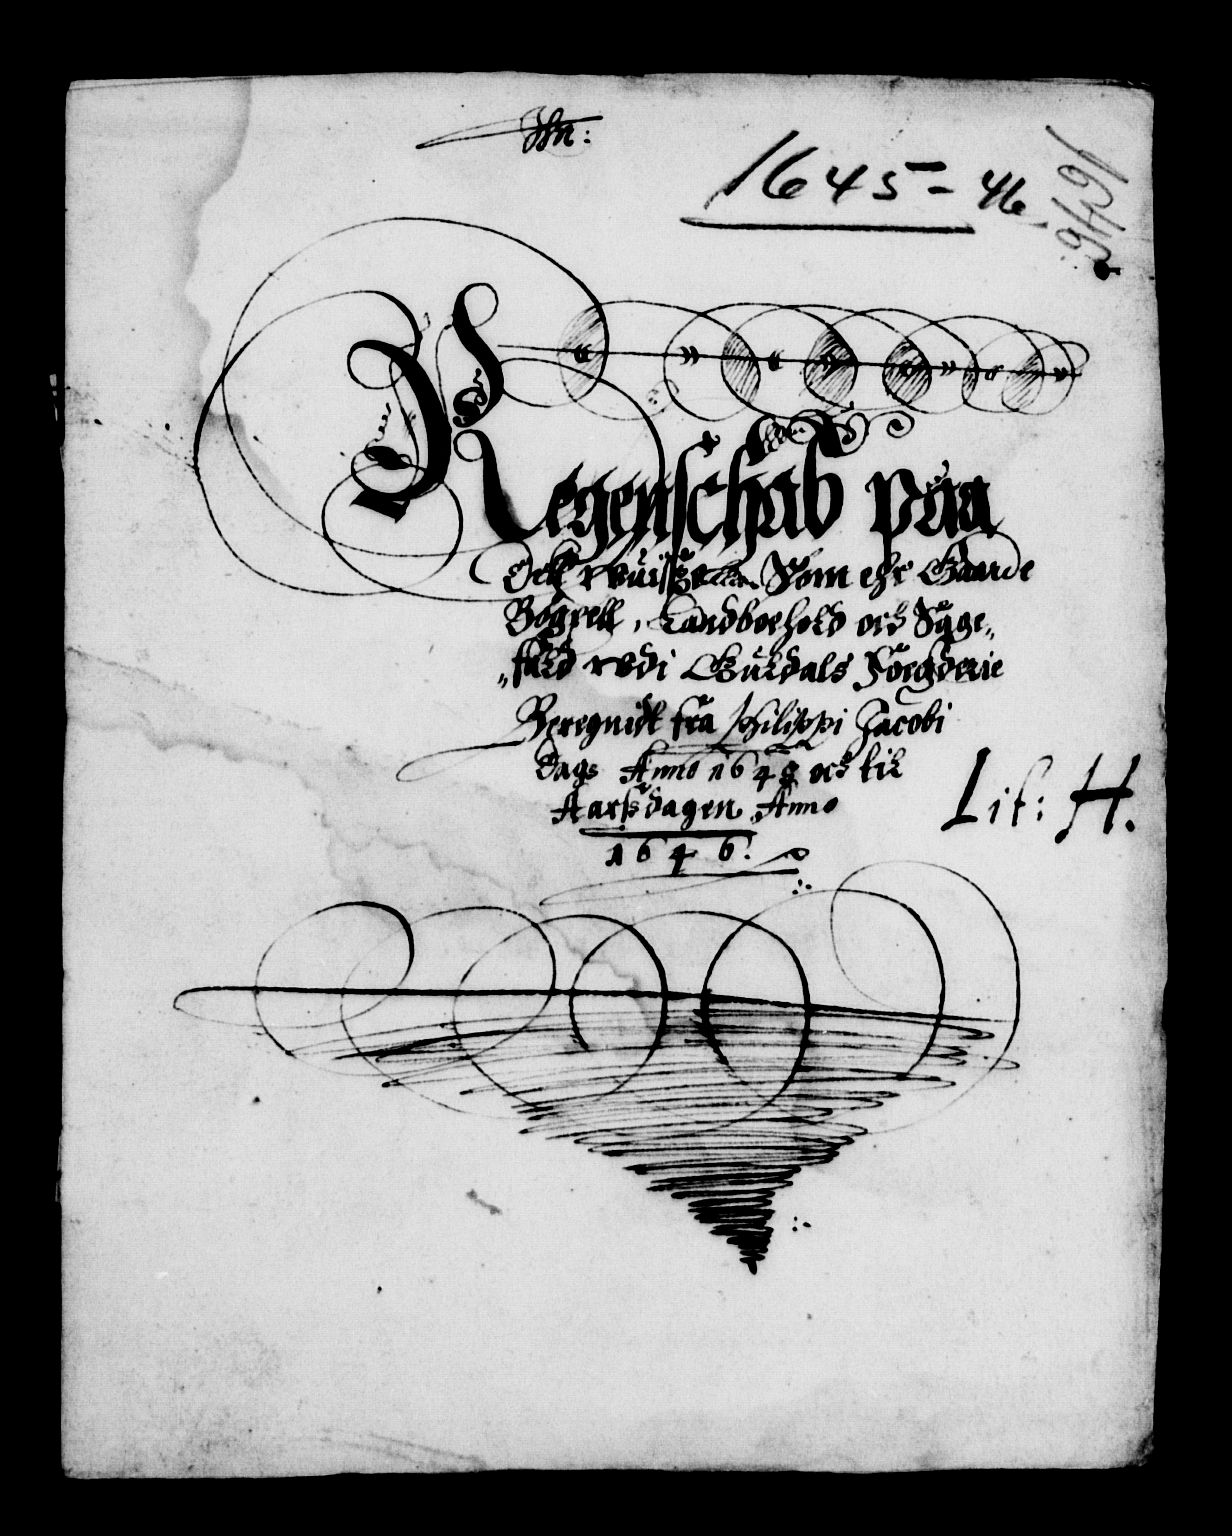 1645-46.
1646
Regenschab paa
Dett wuisze Som ehr Gaarde
Bögxell, Landboehold och Sage„
„fald wdi Guldals Foegderie
Beregnidt fra Philippi Jacobi
dags Anno 1645 och til
Aarszdagen Anno
1646.
Lit: H.